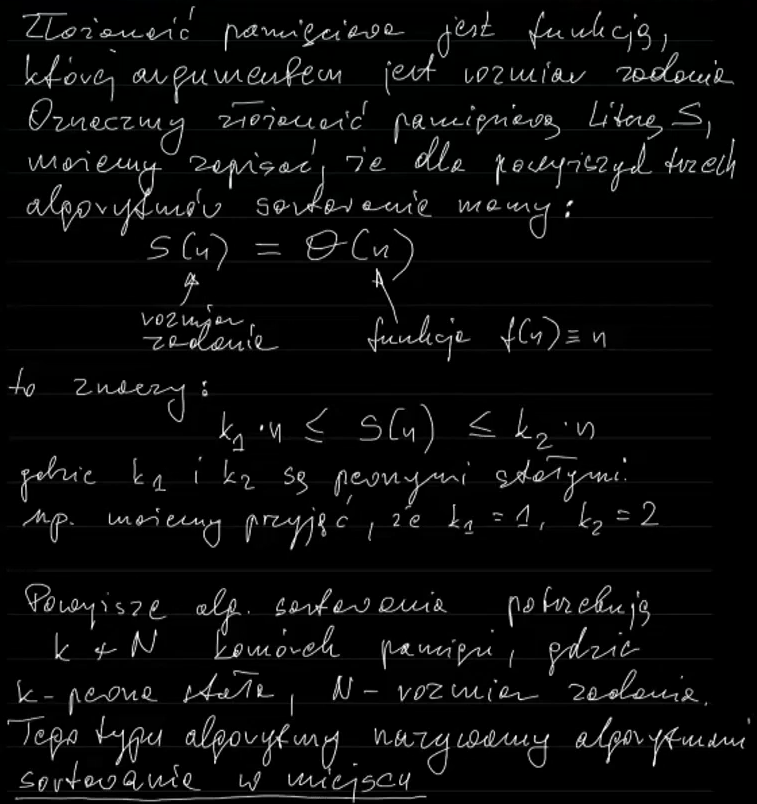 Złożoność pamięciowa jest funkcją,
której argumentem jest rozmiar zadania
Oznaczmy złożoność pamięciową literą S,
możemy zapisać, że dla powyższych trzech
algorytmów sortowania mamy:
S(n) = Θ(n)
rozmiar
zadania funkcja f(n) ≡ n
to znaczy:
k₁·n ≤ S(n) ≤ k₂·n
gdzie k₁ i k₂ są pewnymi stałymi.
np. możemy przyjąć, że k₁ = 1, k₂ = 2
Powyższe alg. sortowania potrzebują
k + N komórek pamięci, gdzie
k - pewna stała, N - rozmiar zadania.
Tego typu algorytmy nazywamy algorytmami
sortowania w miejscu